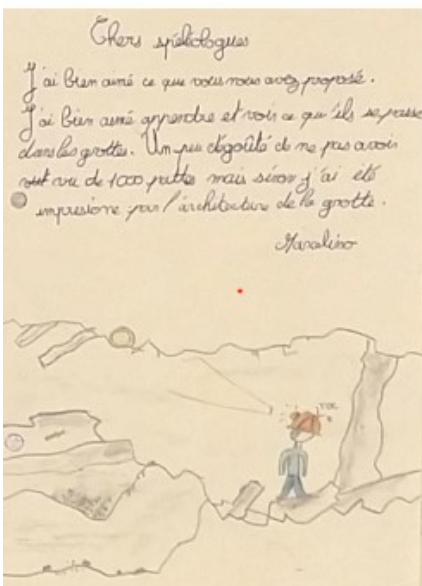 Chers spéléologues
J'ai bien aimé ce que vous nous avez proposé.
J'ai bien aimé apprendre et voir ce qu'ils se passe
dans les grottes. Un peu dégoûté de ne pas avoir
vu de 1000 pattes mais sinon j'ai été
impresioné par l'architecture de la grotte.
Marcelino
TOC